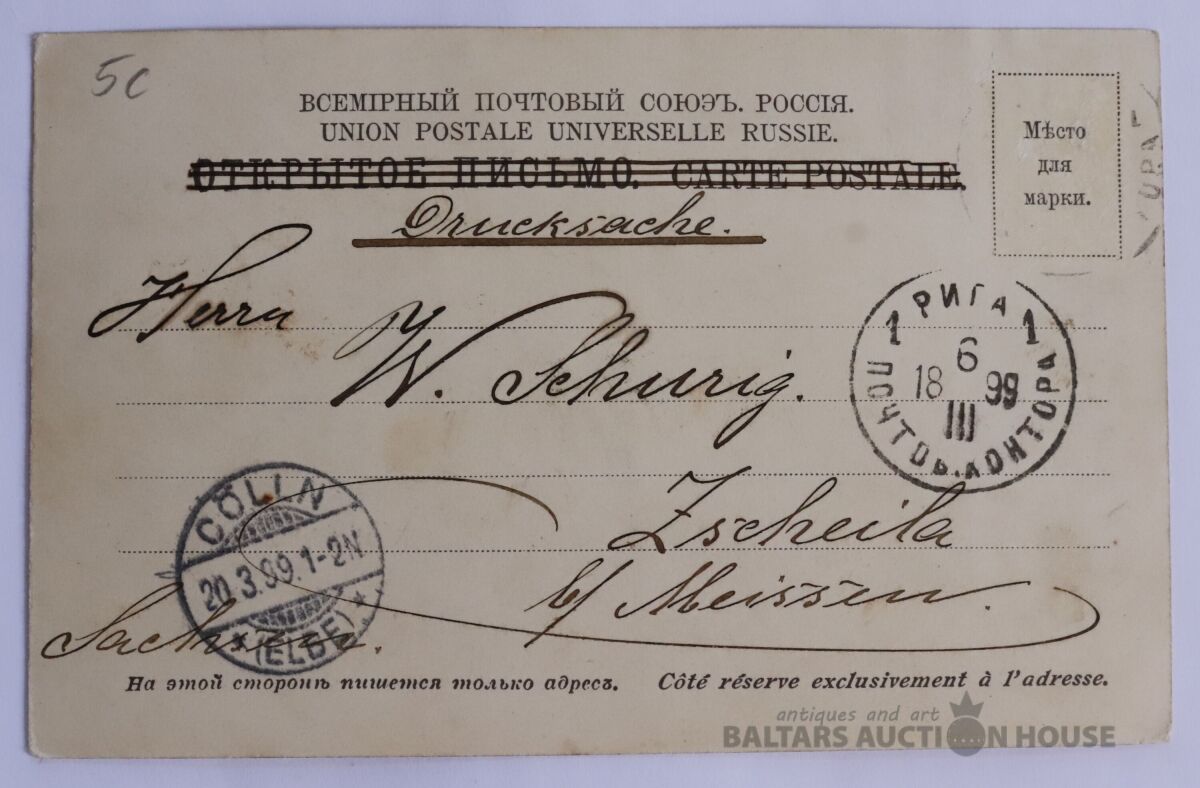 5c
ВСЕМІРНЫЙ ПОЧТОВЫЙ СОЮЗЪ. РОССІЯ.
UNION POSTALE UNIVERSELLE RUSSIE.
ОТКРЫТОЕ ПИСЬМО. CARTE POSTALE.
Мѣсто
для
марки.
Drucksache.
Herrn
W. Schurig.
РИГА
1 1
6
18 99
III
ПОЧТОВ. КОНТОРА
Zscheila
b/ Meissen.
Sachsen.
CÖLLN
20.3.99.1-2N
* (ELBE) *
На этой сторонѣ пишется только адресъ. Côté réserve exclusivement à l'adresse.
antiques and art
BALTARS AUCTION HOUSE